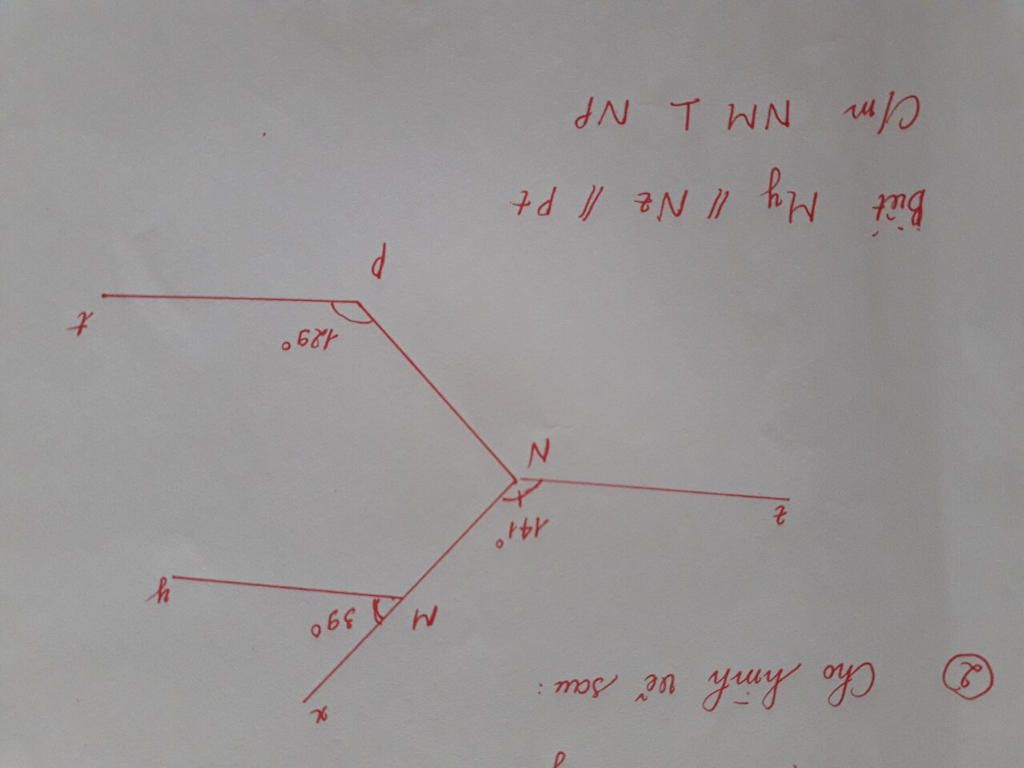 ② Cho hình vẽ sau:
x
39°
M
y
141°
z
N
129°
t
P
Biết My // Nz // Pt
C/m NM ⊥ NP